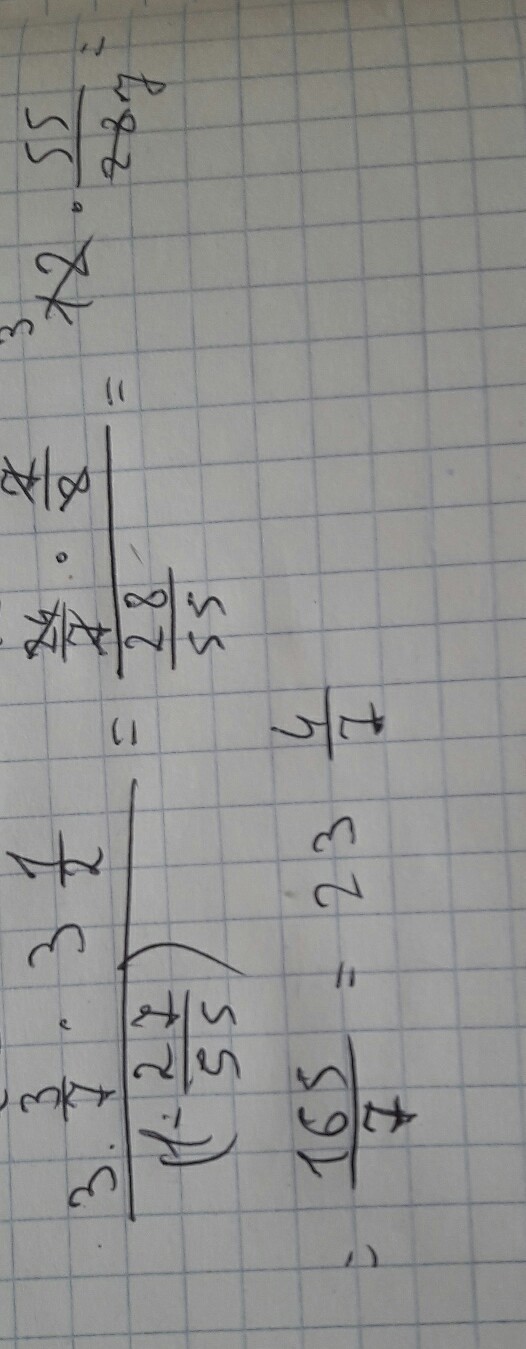 3 3/7 · 3 1/2 / (1 - 27/55) = 24/7 · 7/2 / 28/55 = 3 12 · 55/28 7 =
= 165/7 = 23 4/7